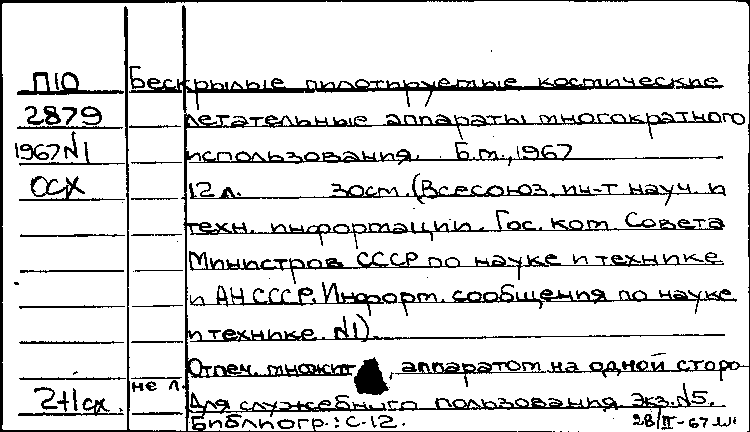 П10 Бескрылые пилотируемые космические
2879 летательные аппараты многократного
1967 №1 использования. Б.м., 1967
ОСХ 12 л. 30см. (Всесоюз. ин-т науч. и
техн. информации. Гос. ком. Совета
Министров СССР по науке и технике
и АН СССР. Информ. сообщения по науке
и технике. №1).
Отпеч. множит , аппаратом на одной сторо
не л.
2+1сх. Для служебного пользования Экз. №5.
Библиогр.: с. 12. 28/II-67